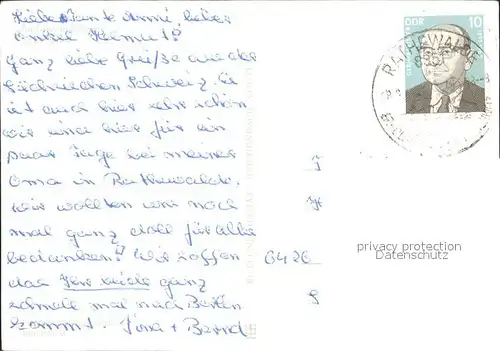 Liebe Tante Anni, lieber
Onkel Helmut!
Ganz liebe Grüße aus der
Sächsischen Schweiz. Es
ist auch hier sehr schön
wir sind hier für ein
paar Tage bei meiner
Oma in Rathewalde.
Wir wollten uns noch
mal ganz doll für alles
bedanken! Wir hoffen
das Ihr beide ganz
schnell mal nach Berlin
kommt.
+ Bernd
DDR
10
RATHEWALDE
8351
6426
privacy protection
Datenschutz